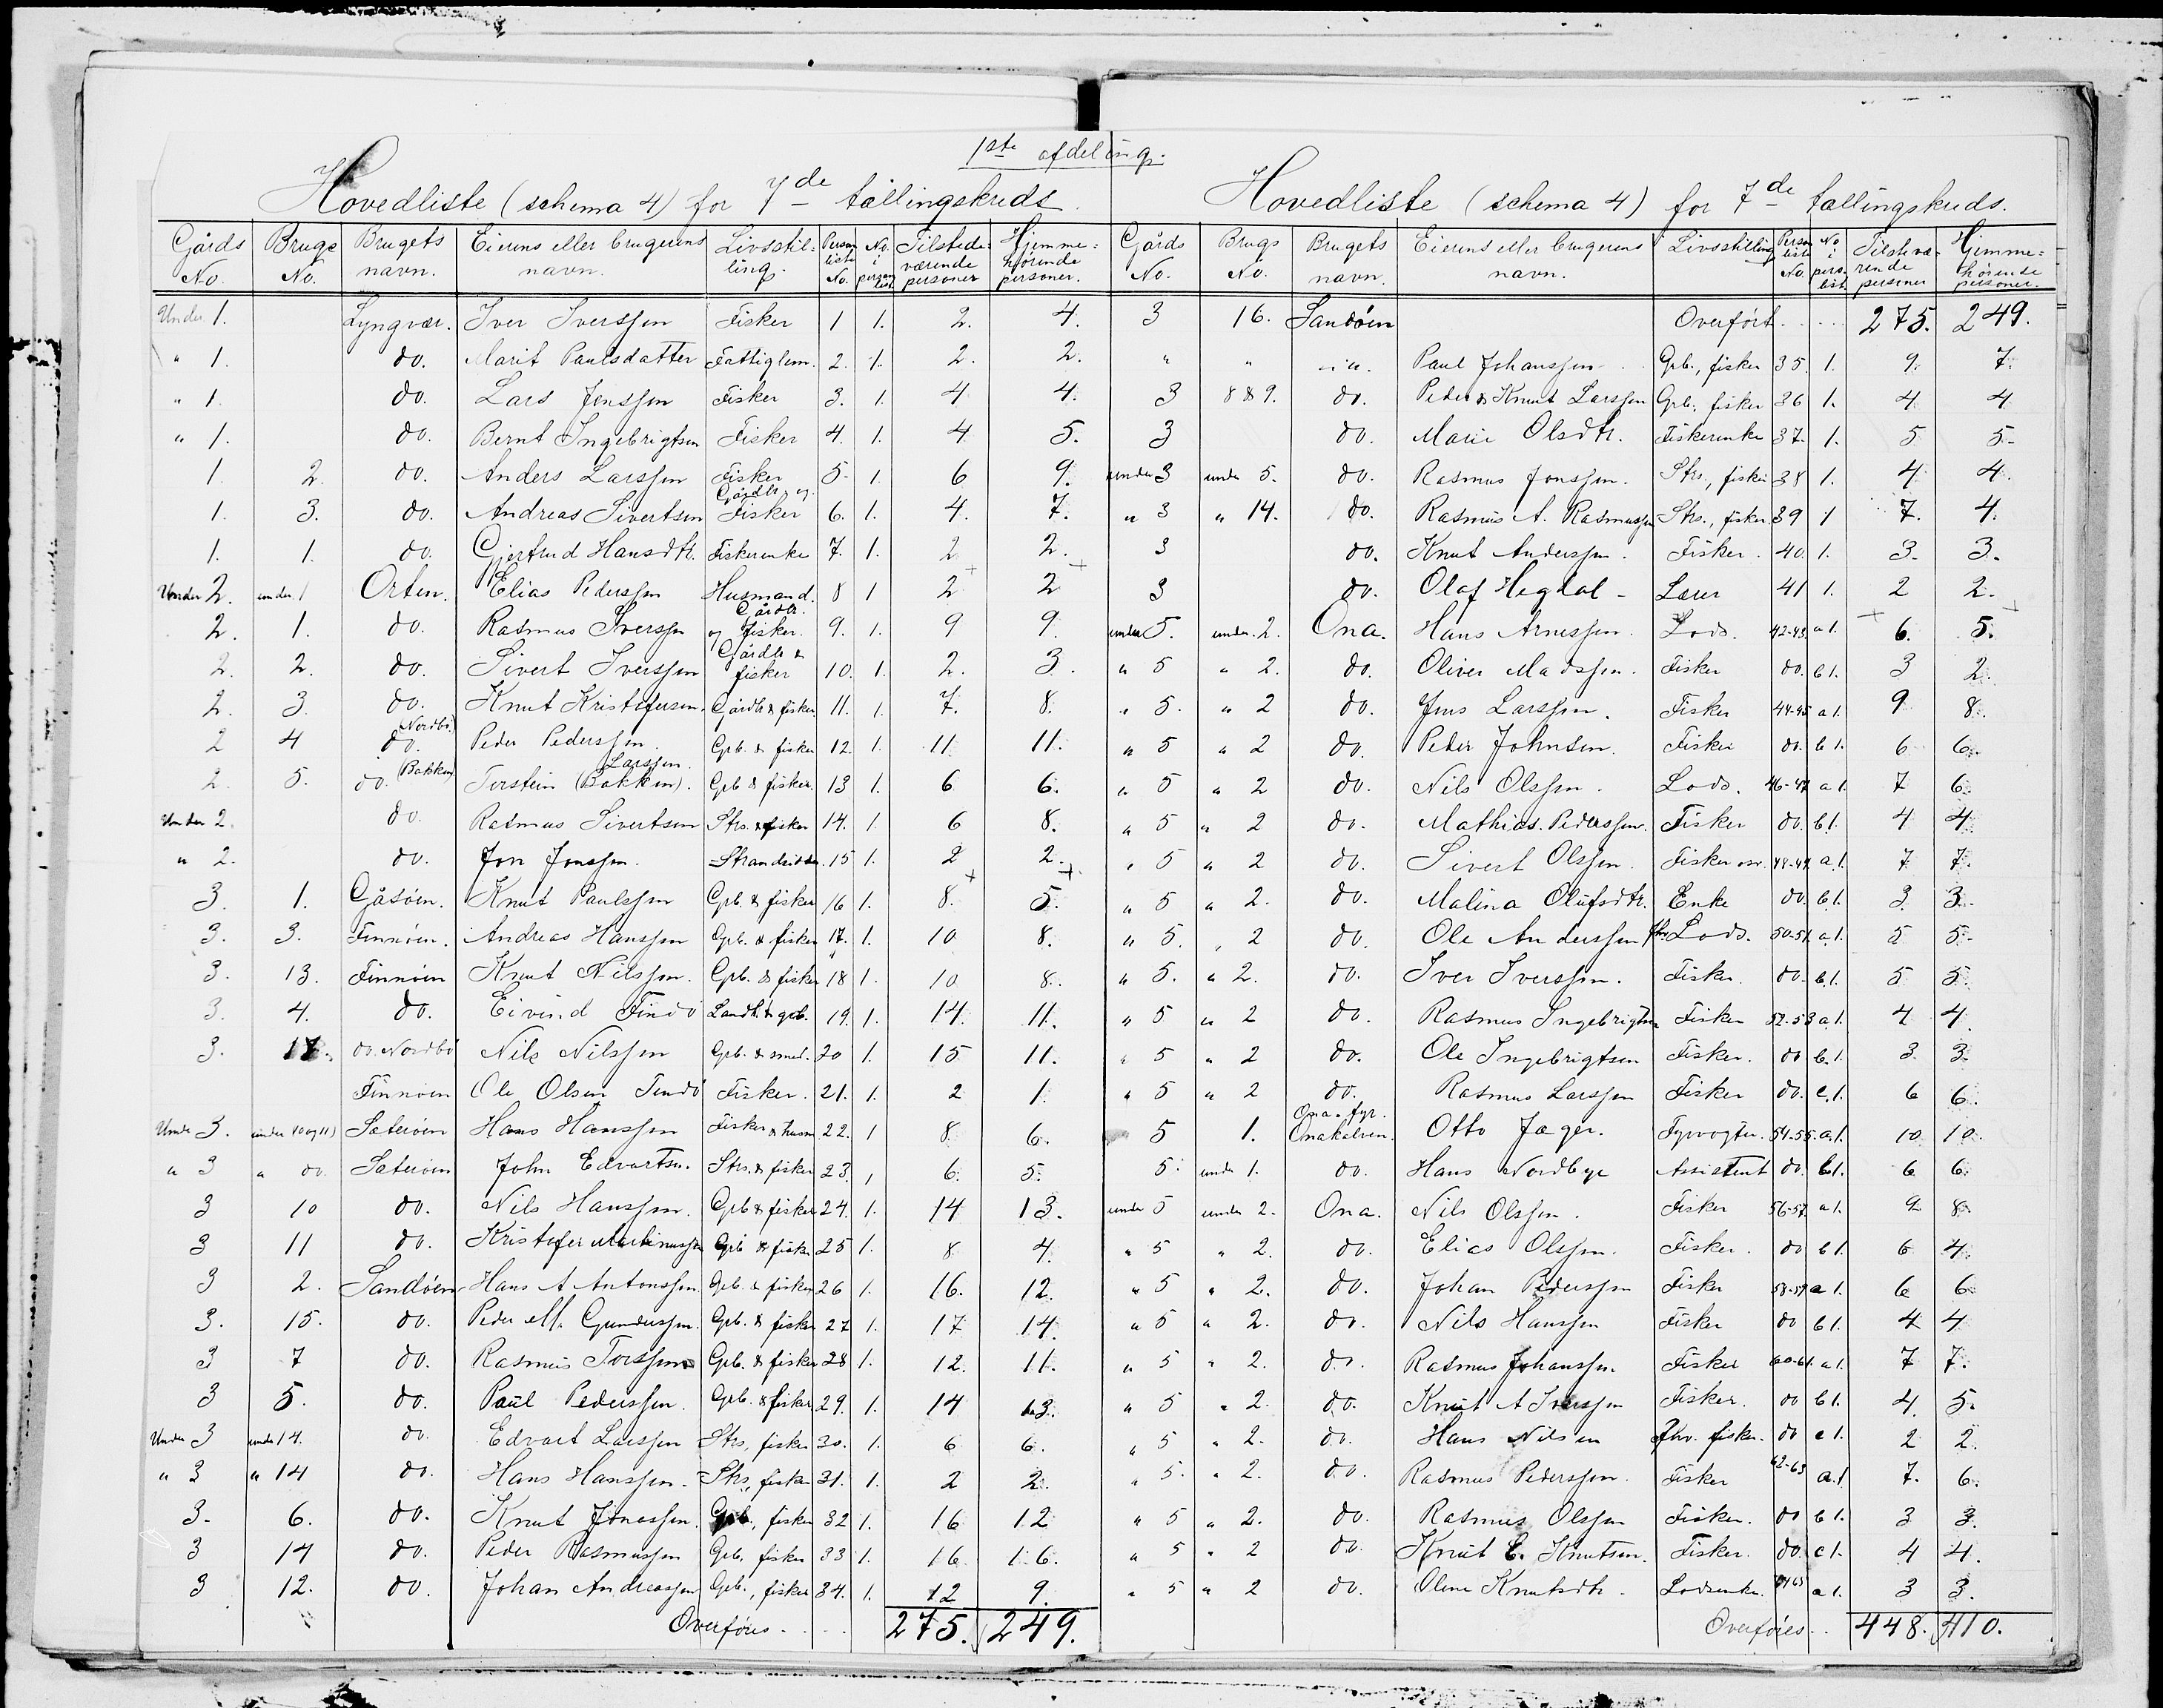 1ste afdeling.
Hovedliste (schema 4) for 7de tællingskreds.
Gårds No. Brugs No. Brugets navn. Eierens eller brugerens navn. Livsstilling. Person liste No. No. i person list. Tilstedeværende personer Hjemmehørende personer.
Under 1. Lyngvær. Iver Iverssen Fisker 1 1. 2. 4.
" 1. do. Marit Paulsdatter Fattiglem. 2. 1. 2. 2.
" 1. do. Lars Jenssen Fisker 3. 1. 4 4.
" 1. do. Bernt Ingebrigtsen Fisker 4. 1. 4 5.
1. 2. do. Anders Larssen Fisker 5. 1 6 9.
1. 3. do. Andreas Sivertsen Gårdbr. og Fisker 6. 1. 4. 7.
1. 1. do. Gjertrud Hansdtr. Fiskerenke 7. 1. 2 2.
Under 2. under 1 Orten. Elias Pederssen Husmand. 8 1 2 2
2. 1. do. Rasmus Iverssen Gårdbr. og fisker. 9. 1. 9 9.
2. 2. do. Sivert Iverssen Gårdbr & fisker 10. 1. 2. 3.
2. 3. do. Knut Kristofersen. Gårdb & fisker. 11. 1. 7. 8.
2 4 do. (Nordbø) Peder Pederssen. Grb. & fisker 12. 1. 11 11.
2. 5. do. (Bakken) Torstein Larssen (Bakken). Grb & fisker. 13 1. 6 6.
Under 2. do. Rasmus Sivertsen Strs. & fisker 14. 1. 6 8.
" 2. do. Jon Jonssen. Strandsidder. 15 1. 2 2.
3. 1. Gåsøen. Knut Paulssen Grb. & fisker 16 1. 8. 5.
3. 3. Finnøen. Andreas Hanssen Grb. & fisker 17. 1. 10 8.
3. 13. Finnøen Knut Nilssen. Grb. & fisker 18 1. 10 8.
3. 4. do. Eivind Findø Landh. & grb. 19. 1. 14. 11.
3. do. Nordbø Nils Nilssen Grb. & smed. 20 1. 15 11.
Finnøen Ole Olsen Findø Fisker. 21. 1. 2 1.
Under 3. under 10 og 11) Sæterøen Hans Hanssen Fisker & husm. 22. 1 8 6.
" 3 " do Sæterøen John Edvartsn. Strs. & fisker 23. 1 6. 5.
3 10 do. Nils Hanssen. Grb & fisker 24. 1. 14 13.
3 11 do. Kristofer Martinussen Grb & fisker 25 1. 8 4.
3 2. Sandøen Hans A Antonssen. Grb. & fisker 26 1. 16. 12.
3. 15. do. Peder M. Gunderssen. Grb. & fisker 27 1. 17 14.
3 7 do. Rasmus Torssen Grb. & fisker 28 1. 12. 11.
3 5. do. Paul Pederssen. Grb. & fisker 29. 1. 14 13.
Under 3 under 14. do. Edvart Larssen Strs, fisker 30. 1. 6 6.
" 3 " 14 do. Hans Hanssen. Strs, fisker 31. 1. 2 2.
3. 6. do. Knut Jonassen. Grb., fisker 32 1. 16 12
3 14 do. Peder Rasmussen Grb. fisker 33 1. 16 16.
3 12. do. Johan Andreassen Grb., fisker 34. 1. 12 9.
Overføres 275. 249.
Hovedliste (schema 4) for 7de tællingskreds.
Gårds No. Brugs No. Brugets navn. Eierens eller brugerens navn. Livsstilling Person liste No. No i pers. list Tilstedeværende personer Hjemmehørende personer.
3 16. Sandøen Overført 275. 249.
" " " Paul Johanssen Grb., fisker 35. 1. 9. 7.
3 8 & 9. do. Peder & Knut Larssen Grb. fisker 36 1. 4 4
3 do. Marie Olsdtr. Fiskerenke 37. 1. 5 5.
under 3 under 5. do. Rasmus Jonssen. Strs., fisker 38 1. 4 4.
" 3 " 14. do. Rasmus A. Rasmussen Strs., fisker. 39 1 7. 4.
3 do. Knut Anderssen. Fisker. 40. 1. 3. 3.
3 do. Olaf Hegdal Lærer 41 1. 2 2.
under 5. under 2. Ona. Hans Arnessen. Lods. 42-43. a 1. 6. 5.
" 5 " 2. do. Oliver Madssen. Fisker do. b 1. 3 2.
" 5. " 2 do. Jens Larssen. Fisker 44-45 a 1. 9 8.
" 5 " 2 do. Peder Johnsen. Fisker do. b 1. 6 6.
" 5 " 2 do. Nils Olssen. Lods. 46-47 a 1. 7 6.
" 5 " 2 do. Mathias Pederssen. Fisker do. b 1. 4 4
" 5 " 2 do. Sivert Olssen. Fisker 48-49. a 1. 7 7.
" 5 " 2. do. Malina Olufsdtr. Enke do. b 1. 3. 3.
" 5. " 2 do. Ole Anderssen fhv. Lods. 50-51. a 1. 5 5.
" 5. " 2. do. Iver Iverssen. Fisker. do. b 1. 5 5.
" 5 " 2 do. Rasmus Ingebrigtsen Fisker 52-53 a 1. 4 4.
" 5 " 2 do. Ole Ingebrigtsen Fisker. do b 1. 3 3.
" 5 " 2 do. Rasmus Larssen Fisker do. c 1. 6 6.
5 1. Ona fyr. Onakalven. Otto Jæger. Fyrvogter. 54-55. a 1. 10 10.
5. under 1. do. Hans Nordbye Assistent do. b 1. 6 6.
under 5 under 2. Ona. Nils Olssen. Fisker 56-57. a 1. 9 8.
" 5 " 2. do. Elias Olssen. Fisker. do b 1. 6 4.
" 5 " 2. do. Johan Pederssen Fisker 58-59 a 1. 6 6.
" 5 " 2. do. Nils Hanssen Fisker do b 1. 4 4
" 5 " 2. do. Rasmus Johanssen. Fisker 60-61. a 1. 7 7.
" 5 " 2. do. Knut A Iverssen Fisker. do b 1. 4. 5.
" 5 " 2. do. Hans Nilsen fhv. fisker. do c 1. 2 2.
" 5. " 2. do. Rasmus Pederssen. Fisker 62-63 a. 1 7. 6.
" 5 " 2. do. Rasmus Olssen Fisker. do b 1. 3 3.
" 5 " 2 do Knut E. Knutsen. Fisker. do. c 1. 4 4.
" 5 " 2 do. Oline Knutsdtr. Lodsenke. 64 65 a 1. 3 3.
Overføres 448. 410.